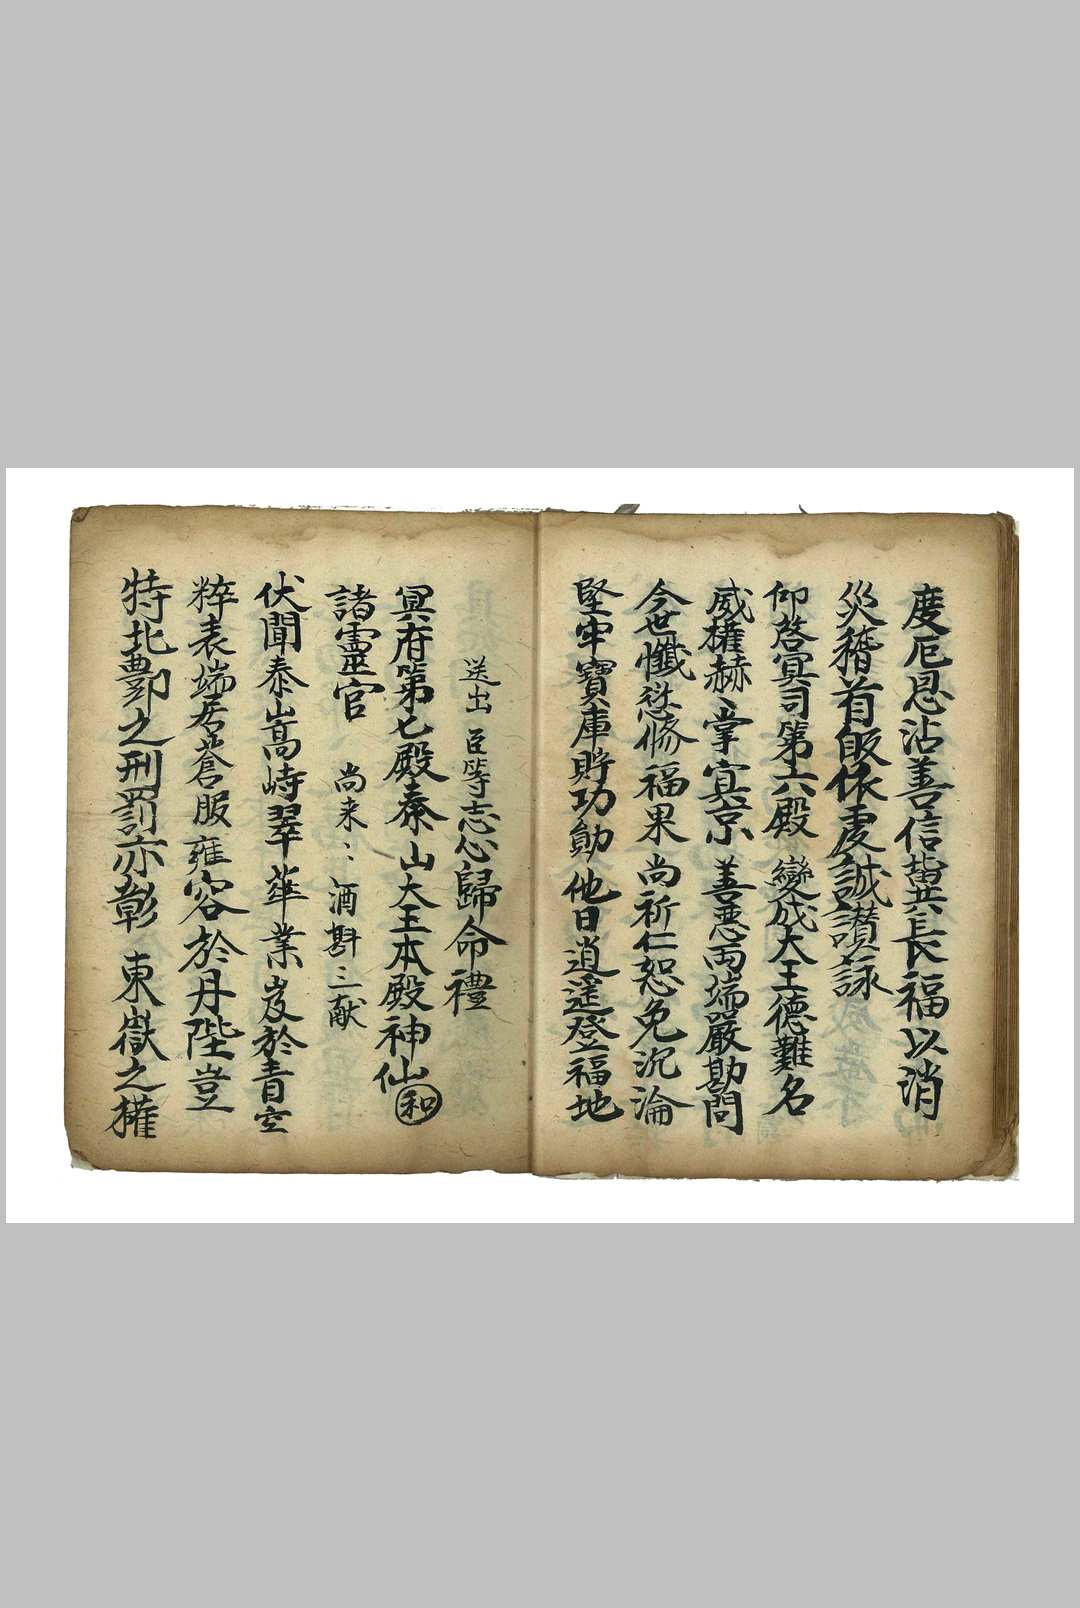 度厄恩沾善信對共長福以消
災稽首皈依虔誠讃詠
仰啓冥司第六殿變成大王德難名
威權赫〻掌冥京善惡两端嚴勘問
今世懺愆修福果尚祈仁恕免沉淪
堅牢寶庫貯功勛他日逍遥登福地
送出 臣等志心歸命禮
冥府第七殿泰山大王本殿神仙 和
諸靈官 尚来〻酒斟三献
伏聞泰嵩峙翠華業岌於青空
粹表端居蒼服雍容於丹陛豈
特北酆之刑罰亦彰東嶽之權